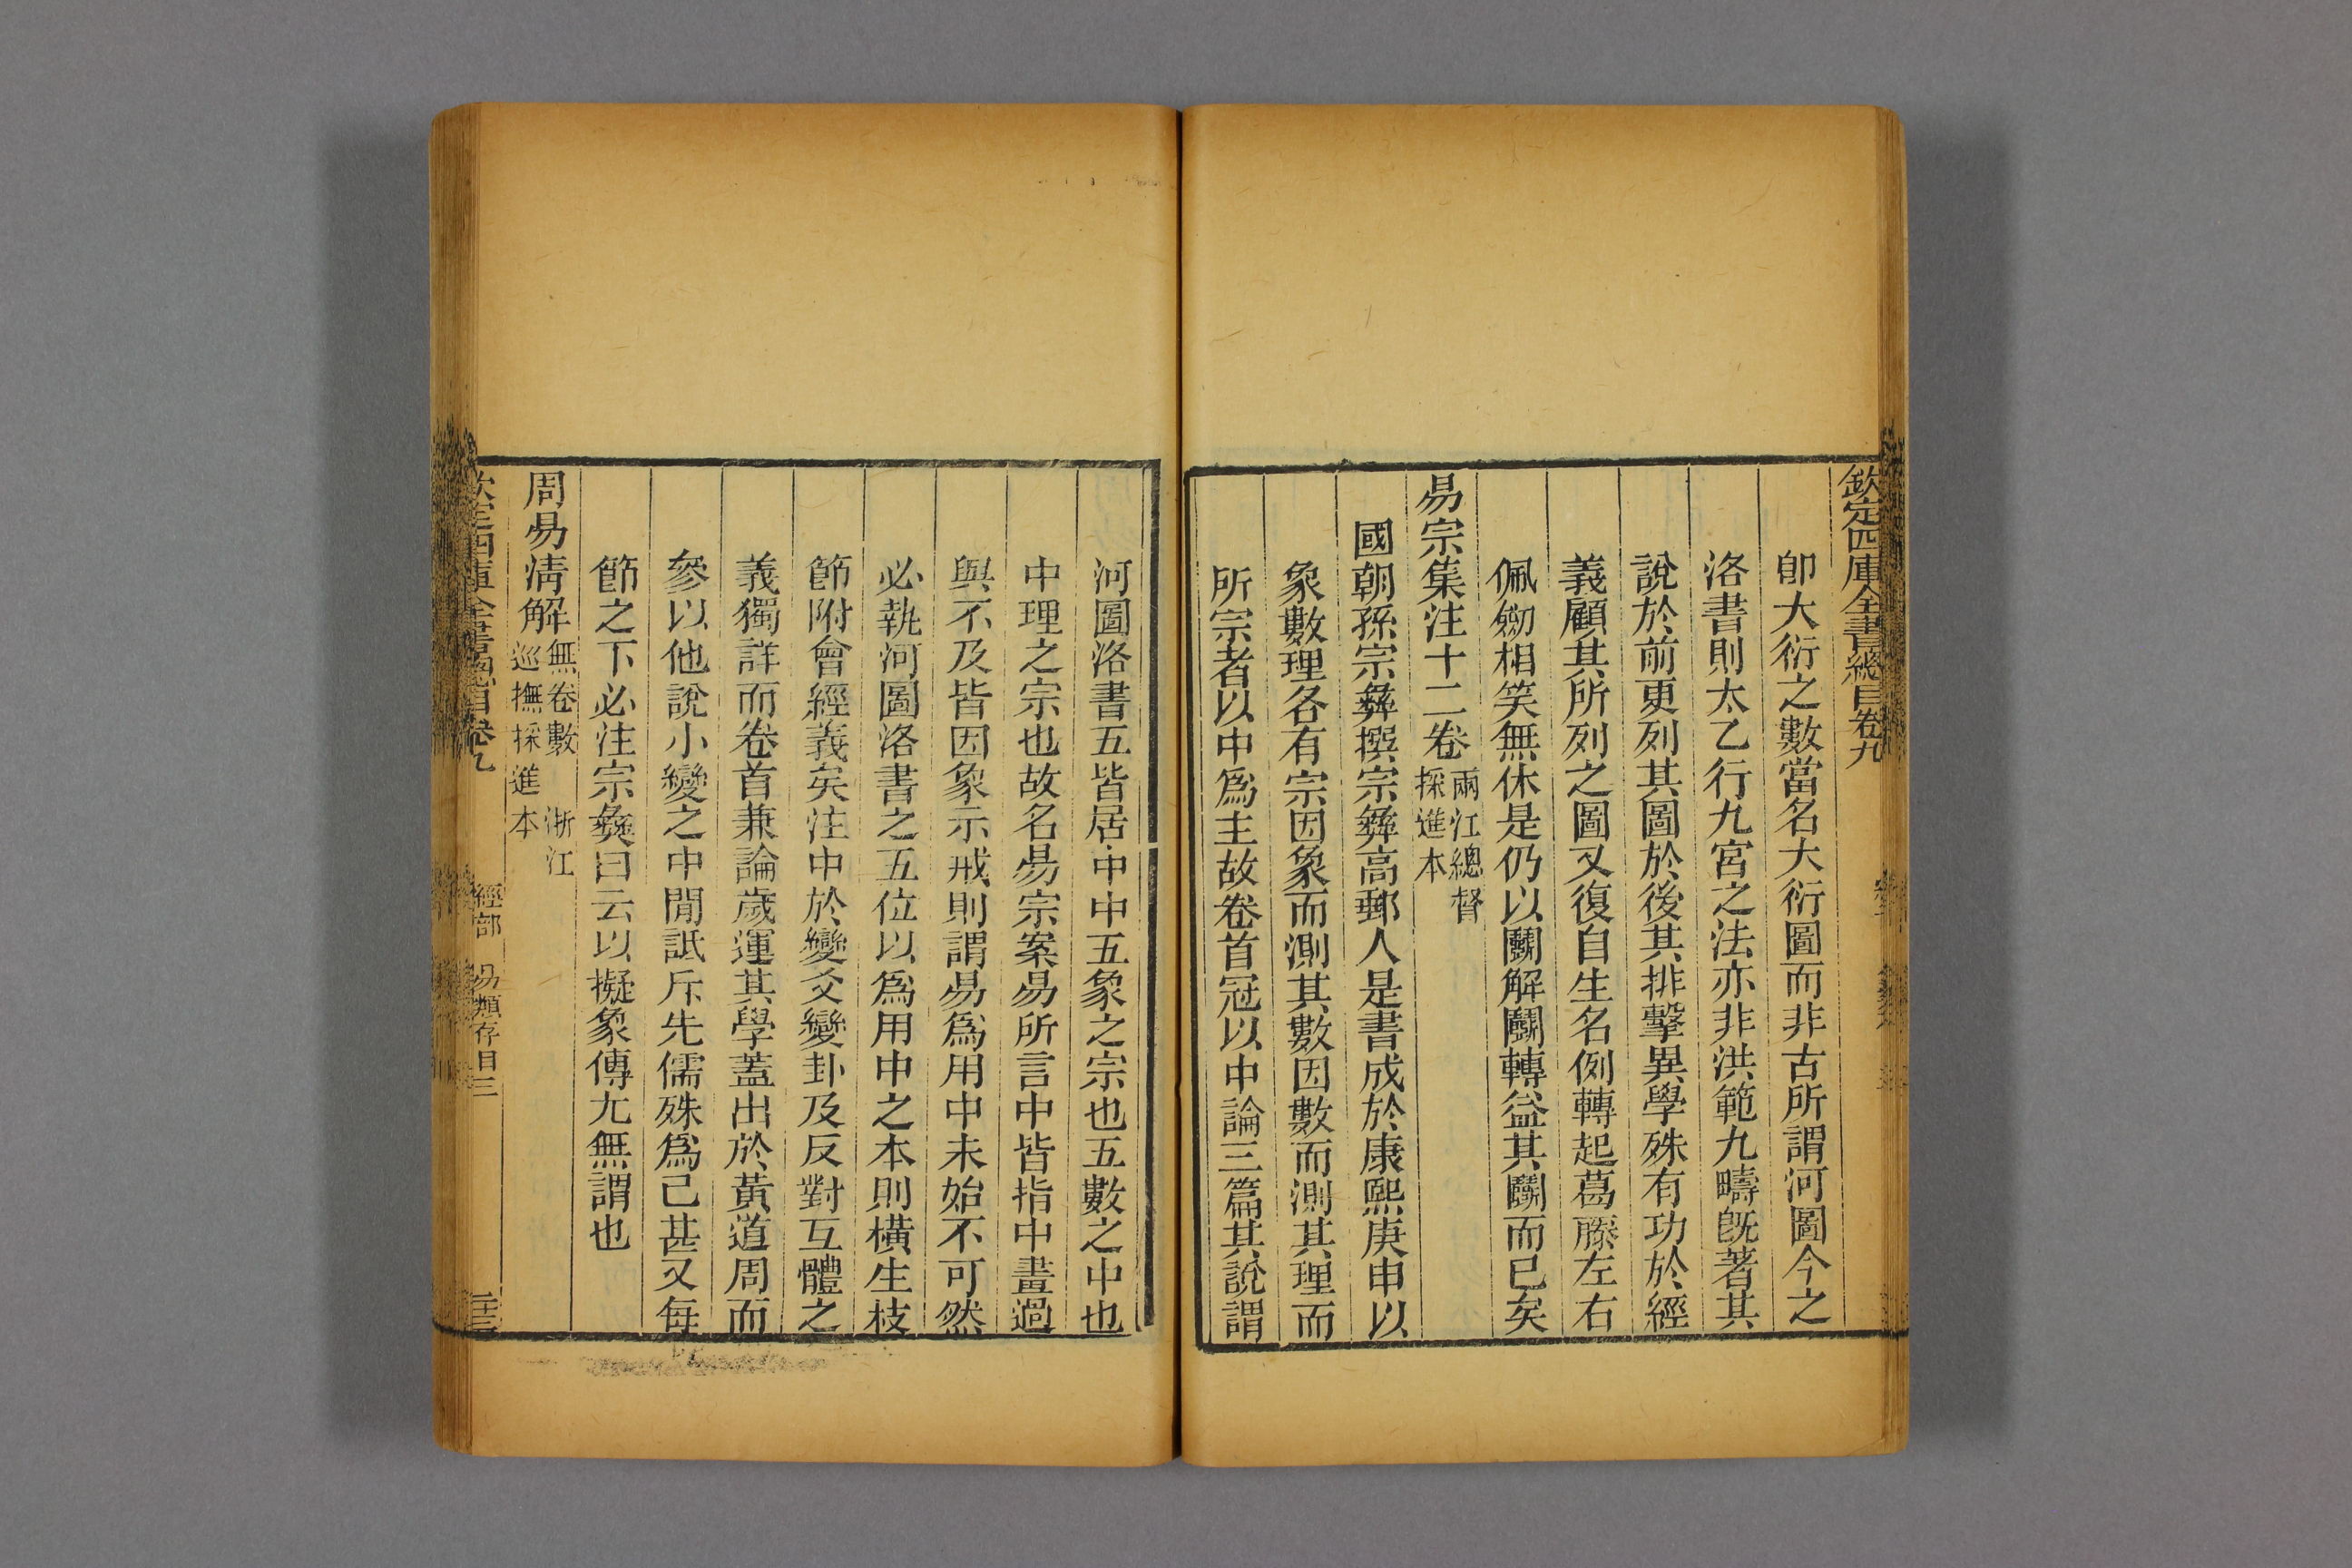 欽定四庫全書總目卷九
卽大衍之數當名大衍圖而非古所謂河圖今之
洛書則太乙行九宮之法亦非洪範九疇旣著其
說於前更列其圖於後其排擊異學殊有功於經
義顧其所列之圖又復自生名例轉起葛藤左右
佩劒相笑無休是仍以鬭解鬭轉益其鬭而已矣
易宗集注十二卷兩江總督
採進本
國朝孫宗彝撰宗彝高郵人是書成於康熙庚申以
象數理各有宗因象而測其數因數而測其理而
所宗者以中爲主故卷首冠以中論三篇其說謂
河圖洛書五皆居中中五象之宗也五數之中也
中理之宗也故名易宗案易所言中皆指中畫過
與不及皆因象示戒則謂易爲用中未始不可然
必執河圖洛書之五位以爲用中之本則橫生枝
節附會經義矣注中於變爻變卦及反對互體之
義獨詳而卷首兼論歲運其學蓋出於黃道周而
參以他說小變之中閒詆斥先儒殊爲已甚又每
節之下必注宗彝曰云以擬象傳尤無謂也
周易淸解無卷數 浙江
巡撫採進本
欽定四庫全書總目卷九
經部 易類存目三
二十三